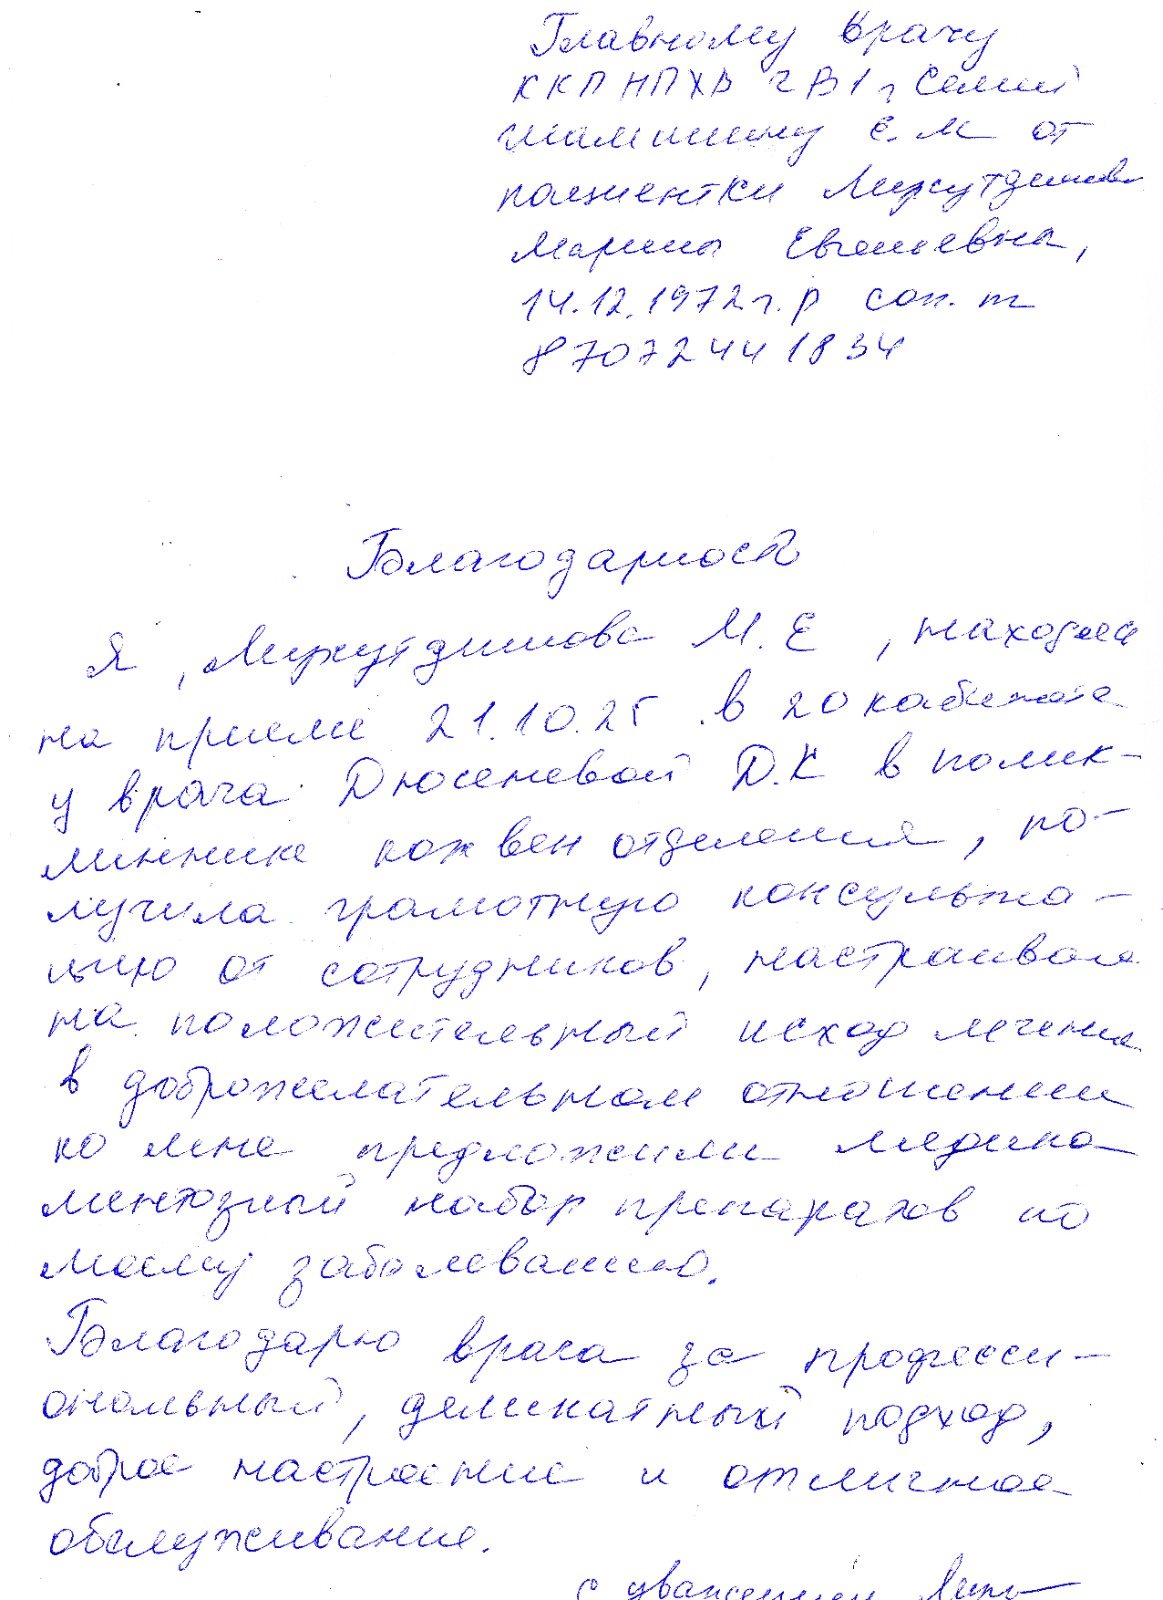 Главному врачу
ККП НПХВ ГВ1 г Семей
Е.М от
пациентки Мирхутдинова
Марины Евгеньевна,
14.12.1972 г.р сот. т
87072441834
Благодарность
Я, Мирхутдинова М.Е, находясь
на приеме 21.10.25 в 20 кабинете
у врача Дюсеневой Д.К в полик-
линнике кож вен отделения, по-
лучила грамотную консульта-
цию от сотрудников, настраивали
на положительный исход лечения
в доброжелательном отношении
ко мне предложили медика
ментозный набор препаратов по
моему заболеванию.
Благодарю врача за професси-
ональный, деликатный подход,
доброе настроение и отличное
обслуживание.
с уважением